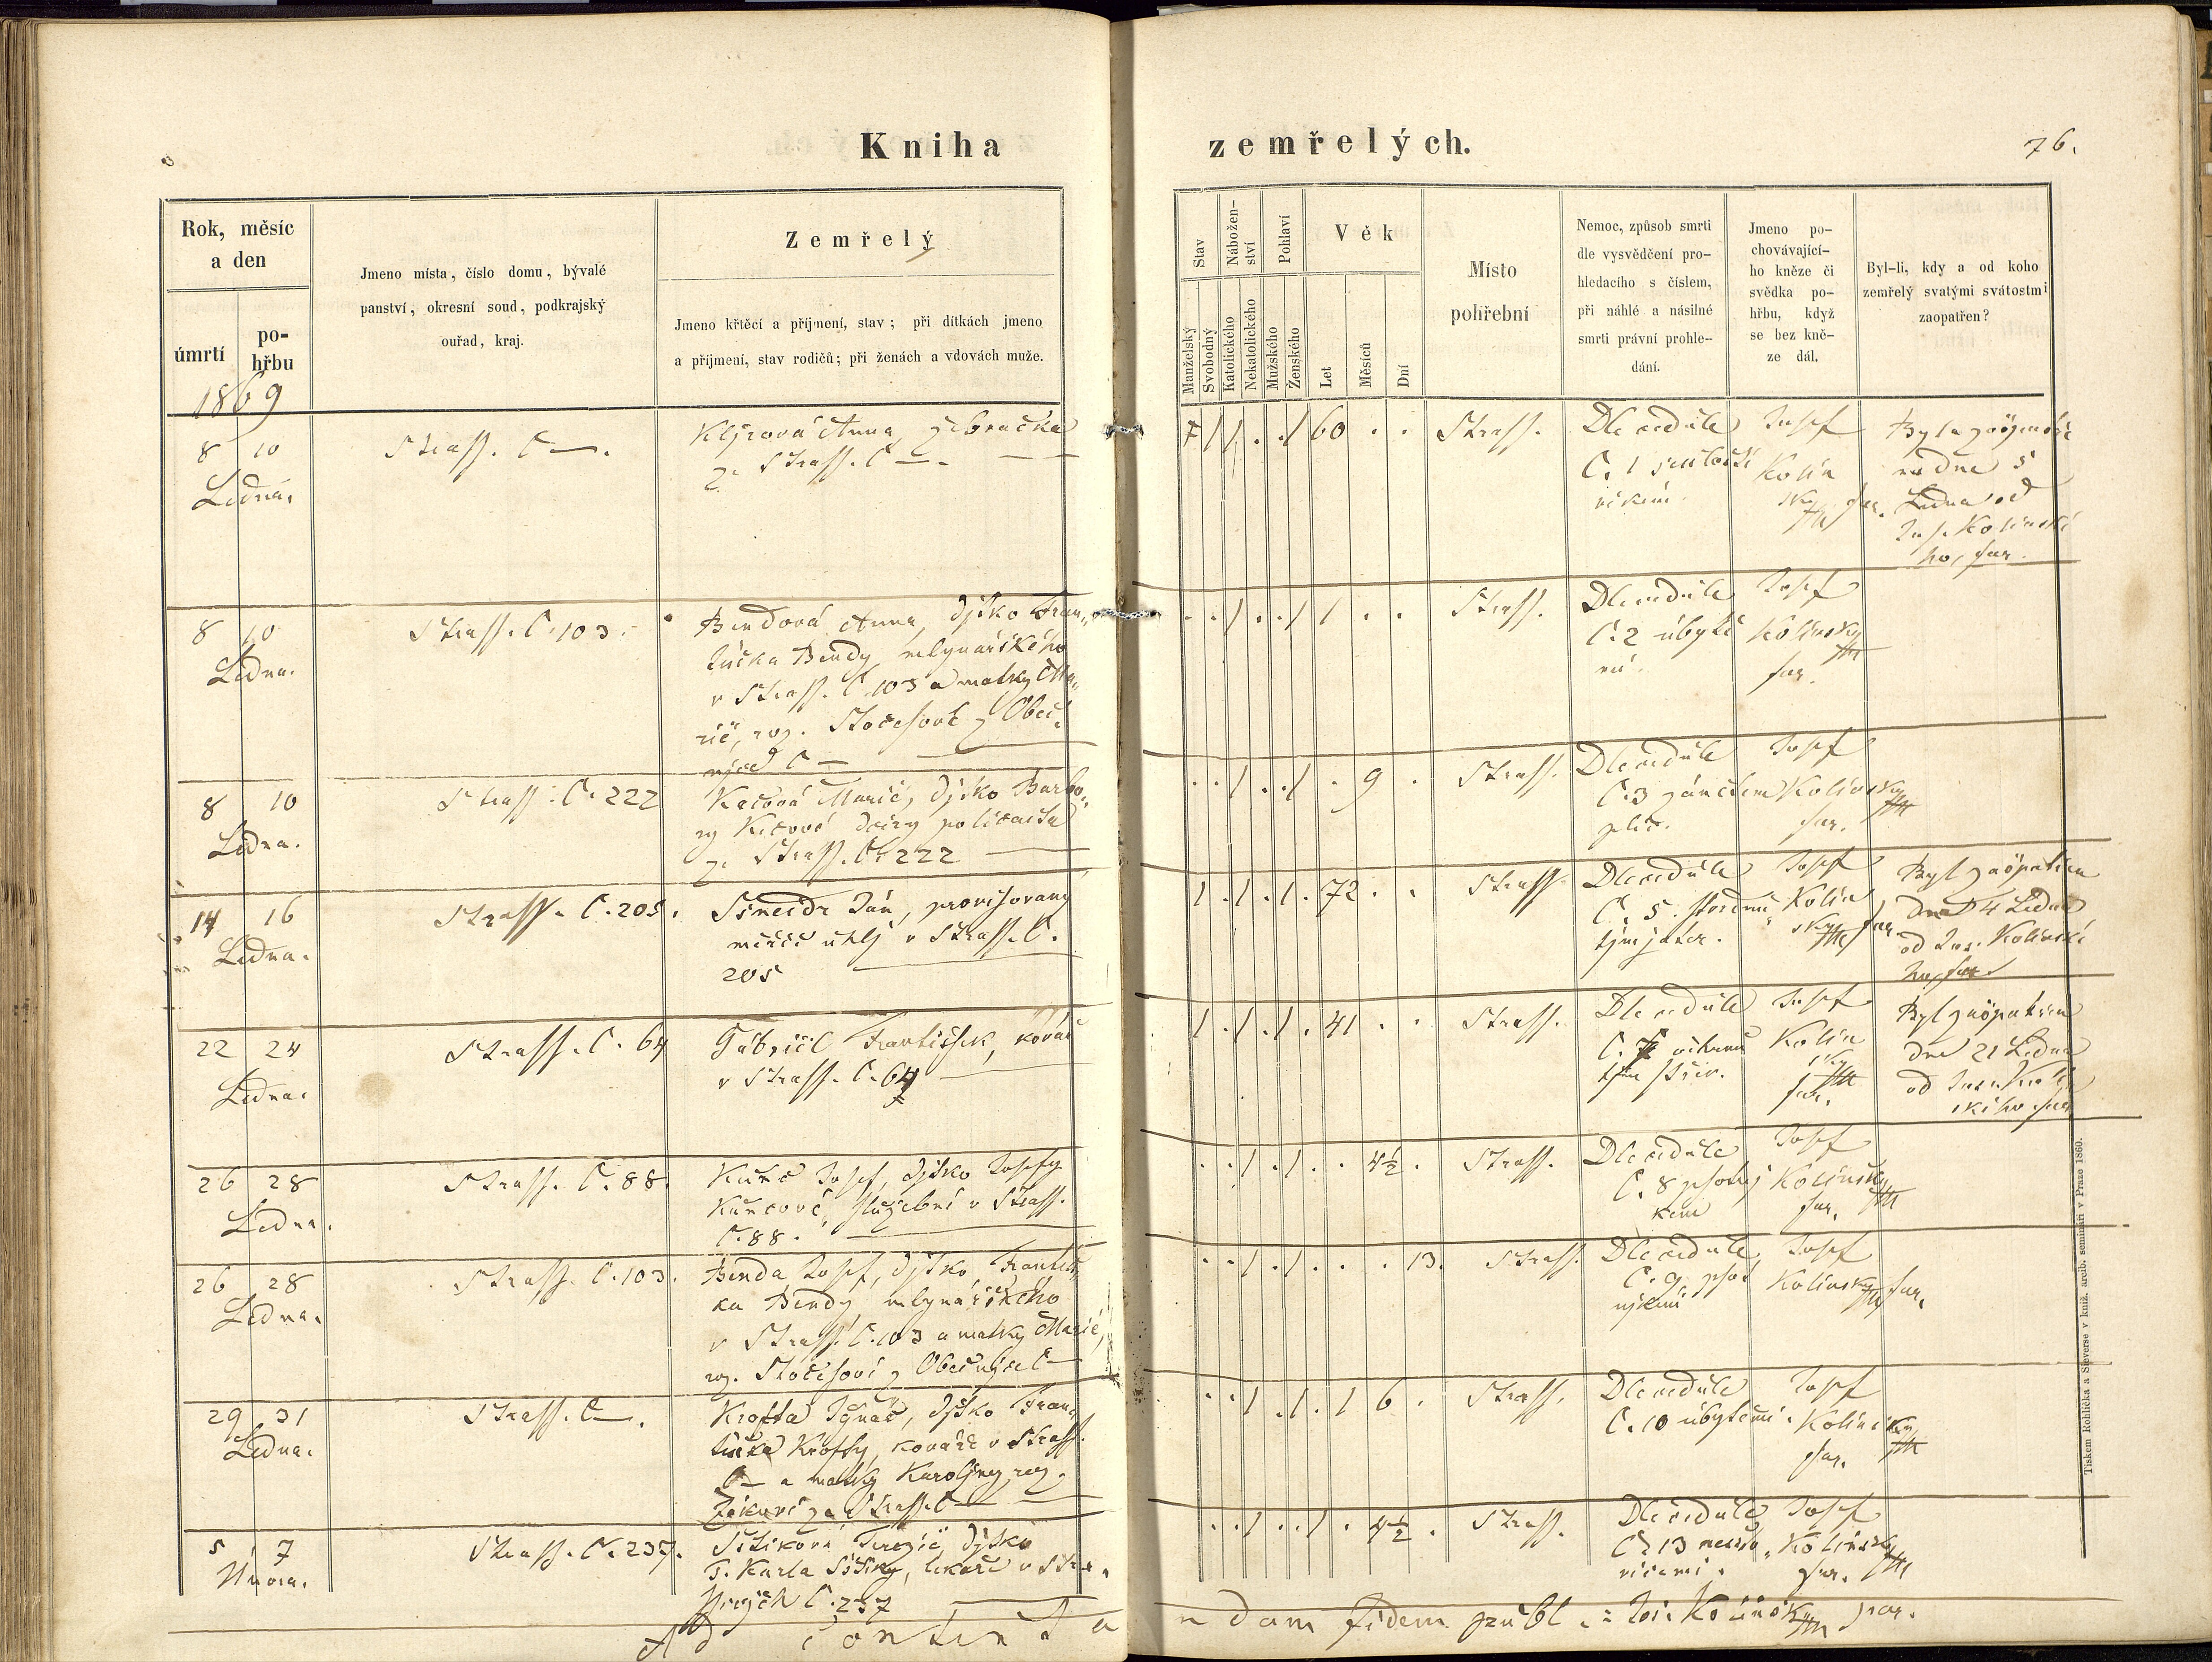 Kniha zemřelých.
76.
Rok, měsíc
a den
úmrtí
po-
hřbu
Jmeno místa, číslo domu, bývalé
panství, okresní soud, podkrajský
ouřad, kraj.
Zemřelý
Jmeno křtěcí a příjmení, stav; při dítkách jmeno
a příjmení, stav rodičů; při ženách a vdovách muže.
Stav
Manželský
Svobodný
Nábožen-
ství
Katolického
Nekatolického
Pohlaví
Mužského
Ženského
Věk
Let
Měsíců
Dní
Místo
pohřební
Nemoc, způsob smrti
dle vysvědčení pro-
hledacího s číslem,
při náhlé a násilné
smrti právní prohle-
dání.
Jmeno po-
chovávající-
ho kněze či
svědka po-
hřbu, když
se bez kně-
ze dál.
Byl-li, kdy a od koho
zemřelý svatými svátostmi
zaopatřen?
1869
8 10
Ledna.
Strass. C —.
Anna, žebračka
ze Strass. C —.
60
Strass.
Dle cedule
C. 1
Josef
Kolín
ský far.
dne 5
Ledna od
Jos. Kolínské
ho, far.
8 10
Ledna.
Strass. C. 103.
Bendová Anna, dítko Fran-
tiška Bendy, mlynářského
v Strass. C. 103 a matky Ma-
rie, roz. Stočesově z Obec-
nice C —
1
Strass.
Dle cedule
C. 2 úbytě
mi.
Josef
Kolínský
far.
8 10
Ledna.
Strass. C. 222
Marie, dítko Barbo-
ry dcery policaita
ze Strass. C. 222
9
Strass.
Dle cedule
C. 3 zánětem
plic.
Josef
Kolínský
far.
14 16
Ledna.
Strass. C. 205.
Šneidr Jan, provisovaný
měřič uhlí v Strass. C.
205
72
Strass.
Dle cedule
C. 5.
Josef
Kolín
ský far.
Byl zaopatřen
dne 4 Ledna
od Jos. Kolínské
ho, far.
22 24
Ledna.
Strass. C. 64
Gabriel František, kovář
v Strass. C. 64
41
Strass.
Dle cedule
C. 7
střev.
Josef
Kolín
ský
far.
Byl zaopatřen
dne 21 Ledna
od Jos. Kolín
ského far.
26 28
Ledna.
Strass. C. 88.
Josef, dítko Josefy
služební v Strass.
C. 88.
4½
Strass.
Dle cedule
C. 8 psotní
kem
Josef
Kolínský
far.
26 28
Ledna.
Strass. C. 103.
Benda Josef, dítko Františ-
ka Bendy, mlynářského
v Strass. C. 103 a matky Marie,
roz. Stočesově z Obecnice C —
13.
Strass.
Dle cedule
C. 9 psot
níkem
Josef
Kolínský far.
29 31
Ledna.
Strass. C —.
Krofta Ignác, dítko Fran-
tiška Krofty, kováře v Strass.
C — a matky Karolíny, roz.
ze Strass. C —
1 6
Strass.
Dle cedule
C. 10 úbytěmi.
Josef
Kolínský
far.
5 7
Února.
Strass. C. 237.
Terezie, dítko
P. Karla lékaře v Stra-
C. 237
4½
Strass.
Dle cedule
C. 13
Josef
Kolínský
far.
Ad contestandam fidem publ. Jos. Kolínský par.
Tiskem Rohlíčka a Sieverse v kníž. arcib. semináři v Praze 1860.